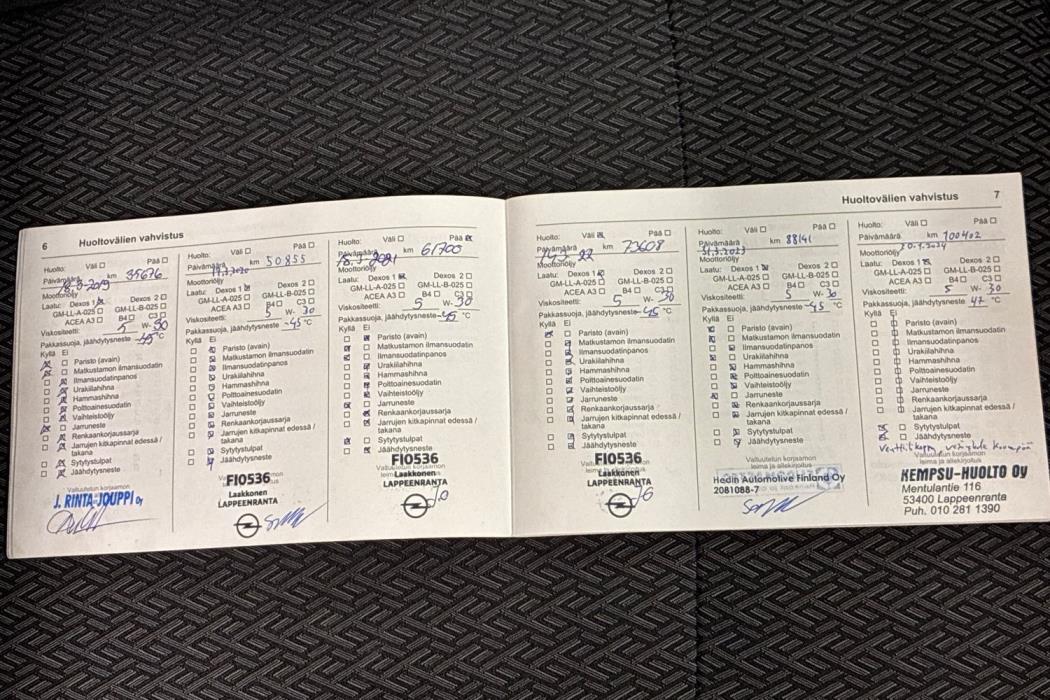 6 Huoltovälien vahvistus
Huolto: Väli Pää
Päivämäärä km 35676
18.3-2019
Moottoriöljy
Laatu: Dexos 1 Dexos 2
GM-LL-A-025 GM-LL-B-025
ACEA A3 B4 C3
Viskositeetti: 5 W- 30
Pakkassuoja, jäähdytysneste -45 °C
Kyllä Ei
Paristo (avain)
Matkustamon ilmansuodatin
Ilmansuodatinpanos
Urakiilahihna
Hammashihna
Polttoainesuodatin
Vaihteistoöljy
Jarruneste
Renkaankorjaussarja
Jarrujen kitkapinnat edessä /
takana
Sytytystulpat
Jäähdytysneste
Valtuutetun korjaamon
J. RINTA-JOUPPI Oy
Huolto: Väli Pää
Päivämäärä km 50855
Moottoriöljy
Laatu: Dexos 1 Dexos 2
GM-LL-A-025 GM-LL-B-025
ACEA A3 B4 C3
Viskositeetti: 5 W- 30
Pakkassuoja, jäähdytysneste -45 °C
Kyllä Ei
Paristo (avain)
Matkustamon ilmansuodatin
Ilmansuodatinpanos
Urakiilahihna
Hammashihna
Polttoainesuodatin
Vaihteistoöljy
Jarruneste
Renkaankorjaussarja
Jarrujen kitkapinnat edessä /
takana
Sytytystulpat
Jäähdytysneste
FI0536
Laakkonen
LAPPEENRANTA
Huolto: Väli Pää
Päivämäärä km 61700
18.3-2021
Moottoriöljy
Laatu: Dexos 1 Dexos 2
GM-LL-A-025 GM-LL-B-025
ACEA A3 B4 C3
Viskositeetti: 5 W- 30
Pakkassuoja, jäähdytysneste -45 °C
Kyllä Ei
Paristo (avain)
Matkustamon ilmansuodatin
Ilmansuodatinpanos
Urakiilahihna
Hammashihna
Polttoainesuodatin
Vaihteistoöljy
Jarruneste
Renkaankorjaussarja
Jarrujen kitkapinnat edessä /
takana
Sytytystulpat
Jäähdytysneste
FI0536
Laakkonen
LAPPEENRANTA
Huoltovälien vahvistus 7
Huolto: Väli Pää
Päivämäärä km 73608
Moottoriöljy
Laatu: Dexos 1 Dexos 2
GM-LL-A-025 GM-LL-B-025
ACEA A3 B4 C3
Viskositeetti: 5 W- 30
Pakkassuoja, jäähdytysneste -45 °C
Kyllä Ei
Paristo (avain)
Matkustamon ilmansuodatin
Ilmansuodatinpanos
Urakiilahihna
Hammashihna
Polttoainesuodatin
Vaihteistoöljy
Jarruneste
Renkaankorjaussarja
Jarrujen kitkapinnat edessä /
takana
Sytytystulpat
Jäähdytysneste
FI0536
Laakkonen
LAPPEENRANTA
Huolto: Väli Pää
Päivämäärä km 88141
31.3.2023
Moottoriöljy
Laatu: Dexos 1 Dexos 2
GM-LL-A-025 GM-LL-B-025
ACEA A3 B4 C3
Viskositeetti: 5 W- 30
Pakkassuoja, jäähdytysneste -45 °C
Kyllä Ei
Paristo (avain)
Matkustamon ilmansuodatin
Ilmansuodatinpanos
Urakiilahihna
Hammashihna
Polttoainesuodatin
Vaihteistoöljy
Jarruneste
Renkaankorjaussarja
Jarrujen kitkapinnat edessä /
takana
Sytytystulpat
Jäähdytysneste
Valtuutetun korjaamon
leima ja allekirjoitus
Hedin Automotive Finland Oy
2081088-7
Huolto: Väli Pää
Päivämäärä km 100402
Moottoriöljy
Laatu: Dexos 1 Dexos 2
GM-LL-A-025 GM-LL-B-025
ACEA A3 B4 C3
Viskositeetti: 5 W- 30
Pakkassuoja, jäähdytysneste 47 °C
Kyllä Ei
Paristo (avain)
Matkustamon ilmansuodatin
Ilmansuodatinpanos
Urakiilahihna
Hammashihna
Polttoainesuodatin
Vaihteistoöljy
Jarruneste
Renkaankorjaussarja
Jarrujen kitkapinnat edessä /
takana
Sytytystulpat
Jäähdytysneste
Valtuutetun korjaamon
leima ja allekirjoitus
KEMPSU-HUOLTO Oy
Mentulantie 116
53400 Lappeenranta
Puh. 010 281 1390